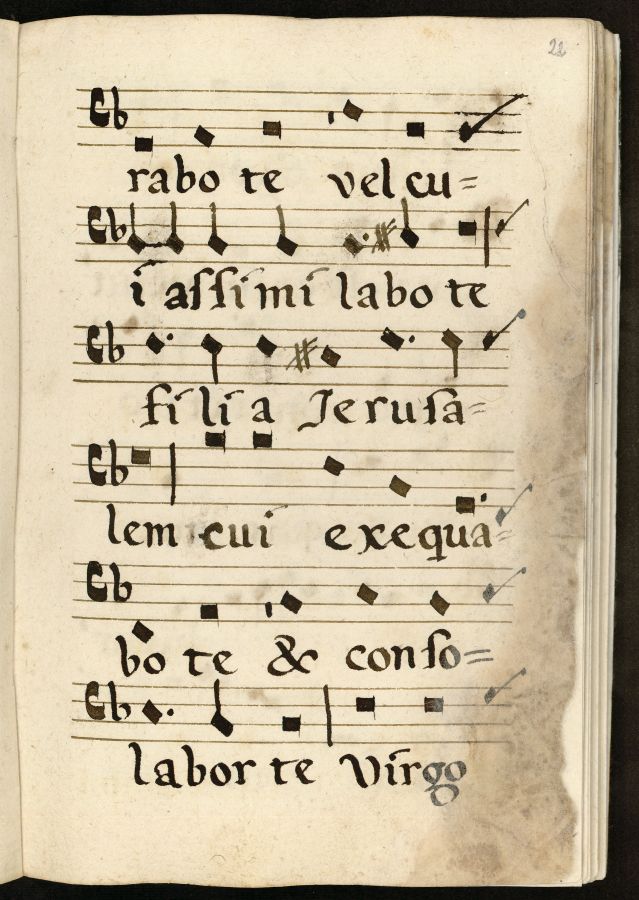 22
rabo te vel cu=
i assimi labo te
fi li a Jerusa=
lem cui exequa=
bo te & conso=
labor te Virgo